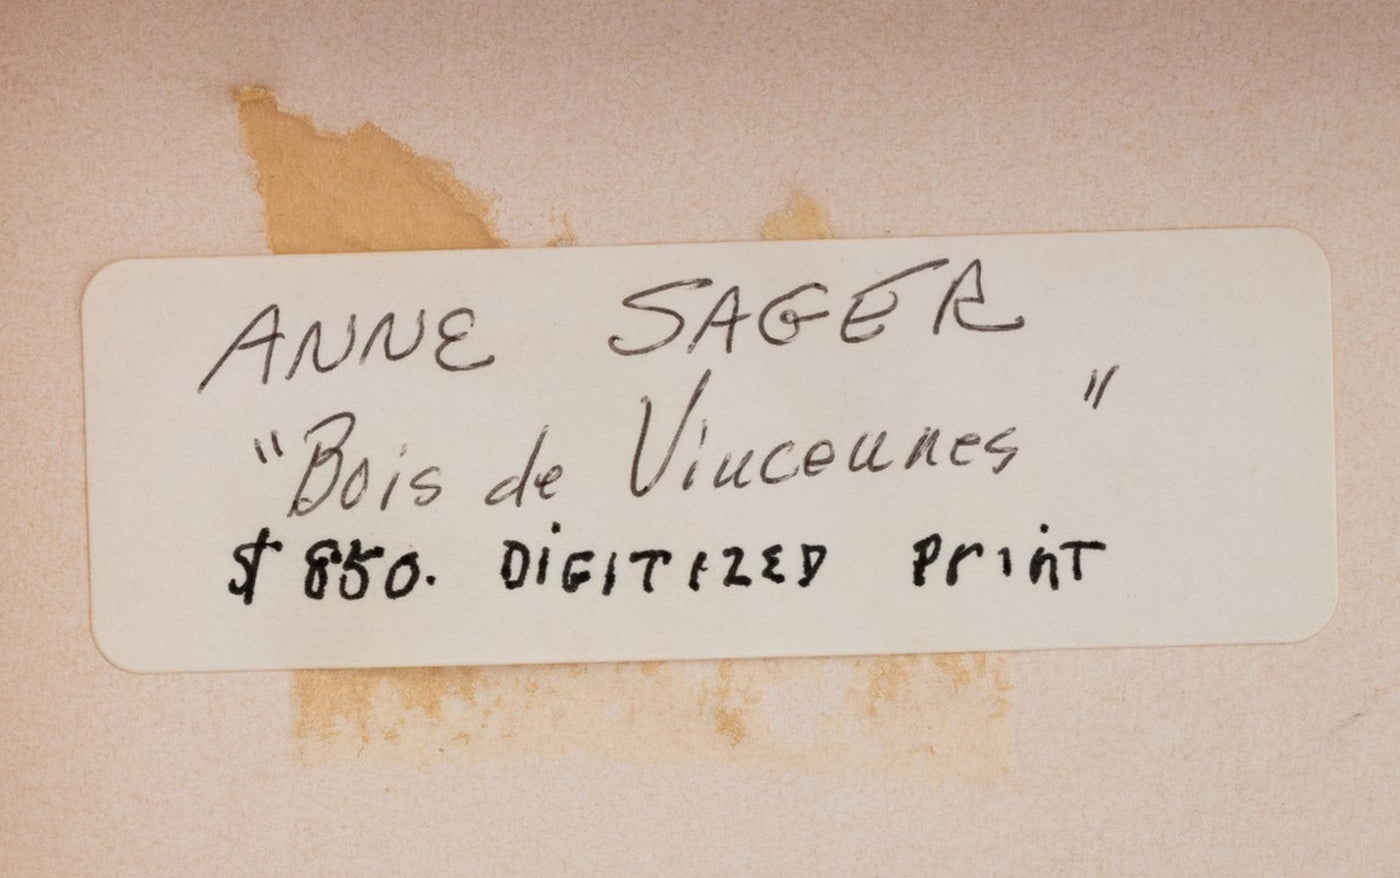 ANNE SAGER
"Bois de Vincennes"
$850. DiGITIZED PrinT